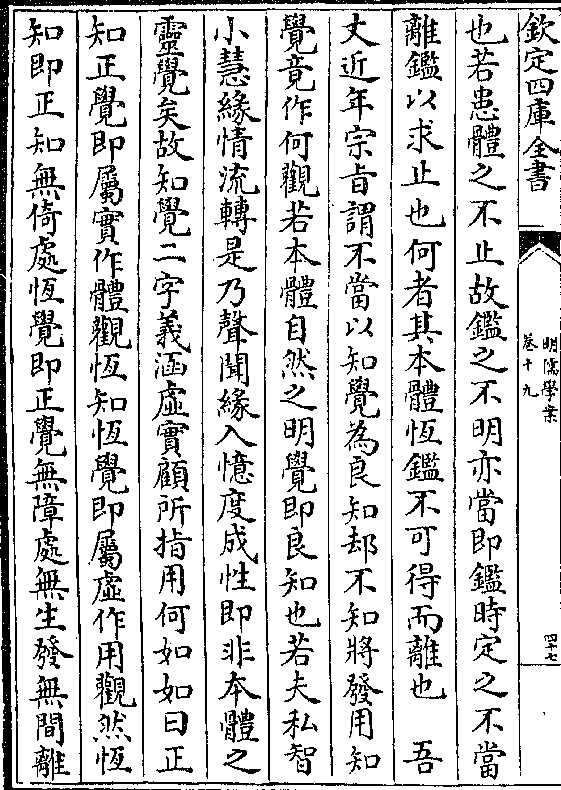 欽定四庫全書
明儒學案
卷十九
四十七
也若患體之不止故鑑之不明亦當即鑑時定之不當
離鑑以求止也何者其本體恆鑑不可得而離也　吾
丈近年宗旨謂不當以知覺為良知却不知將發用知
覺竟作何觀若本體自然之明覺即良知也若夫私智
小慧緣情流轉是乃聲聞緣入憶度成性即非本體之
靈覺矣故知覺二字義涵虛實顧所指用何如如曰正
知正覺即屬實作體觀恆知恆覺即屬虛作用觀然恆
知即正知無倚處恆覺即正覺無障處無生發無間離